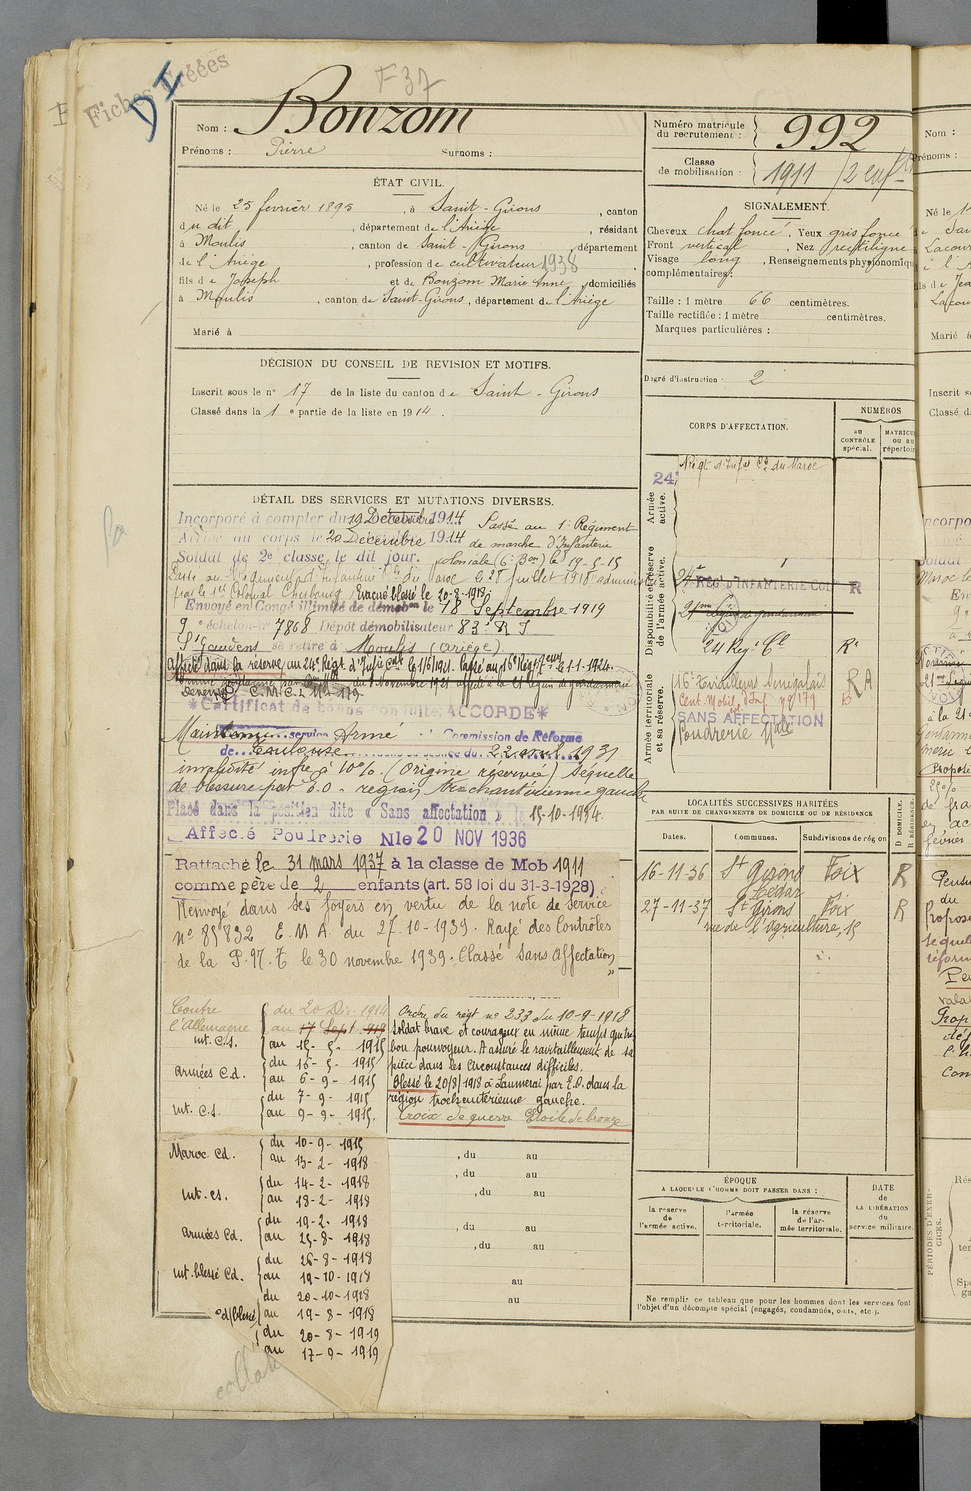 Fiches
DI
F 37
Nom : Bonzom
Prénoms : Pierre Surnoms :
Numéro matricule du recrutement : 992
Classe de mobilisation : 1911 / 2 enfts
ÉTAT CIVIL.
Né le 25 février 1895, à Saint-Girons, canton
du dit, département de l'Ariège, résidant
à Moulis, canton de Saint-Girons, département
de l'Ariège, profession de cultivateur 1938
fils de Joseph et de Bonzom Marie Anne, domiciliés
à Moulis, canton de Saint-Girons, département de l'Ariège
Marié à
SIGNALEMENT.
Cheveux chat foncé. Yeux gris foncé
Front vertical, Nez rectiligne
Visage long, Renseignements physionomiqu
complémentaires :
Taille : 1 mètre 66 centimètres.
Taille rectifiée : 1 mètre centimètres.
Marques particulières :
Degré d'instruction : 2
DÉCISION DU CONSEIL DE REVISION ET MOTIFS.
Inscrit sous le n° 17 de la liste du canton de Saint-Girons
Classé dans la 1e partie de la liste en 1914.
CORPS D'AFFECTATION.
NUMÉROS
au CONTRÔLE spécial.
MATRICU OU au répertoir
Armée active.
Régt d'Infie Cle du Maroc
24
Disponibilité et réserve de l'armée active.
24e REGt D'INFANTERIE COLle R
21me Légion de gendarmerie
24 Reg. Cl R
Armée territoriale et sa réserve.
16e Tirailleurs Sénégalais RA
Cent. Mobil. d'Inf. n° 179 B
SANS AFFECTATION
Poudrerie Nale
DÉTAIL DES SERVICES ET MUTATIONS DIVERSES.
Incorporé à compter du 19 Décembre 1914 Passé au 1er Régiment
Arrivé au corps le 20 Décembre 1914 de marche d'Infanterie
Soldat de 2e classe le dit jour. coloniale (6e Bon) le 19-5-15
par le 1er Colonial Cherbourg. Evacué blessé le 20-8-1918
Envoyé en Congé illimité de démobon le 18 Septembre 1919
9e échelon n° 7868 Dépôt démobilisateur 83e R I
St Gaudens se retire à Moulis (Ariège)
Affecté dans la réserve au 24e Régt d'Infie Cale le 1/6/1921. Passé au 16e Régt le 1-1-1924.
C.M.C.I. n° 179
*Certificat de bonne conduite ACCORDÉ*
Maintenu service Armé Commission de Réforme
de Toulouse du 22 avril 1931
invalidité infre à 10%. (Origine réservée) Séquelle
de blessure par E.O. région trochantérienne gauche
Placé dans la position dite « Sans affectation » le 15-10-1934.
Affecté Poudrerie Nle 20 NOV 1936
Rattaché le 31 mars 1937 à la classe de Mob 1911
comme père de 2 enfants (art. 58 loi du 31-3-1928)
Renvoyé dans ses foyers en vertu de la note de service
n° 85832 E.M.A. du 27-10-1939. Rayé des Contrôles
de la P.N.T le 30 novembre 1939. Classé "Sans affectation"
LOCALITÉS SUCCESSIVES HABITÉES
PAR SUITE DE CHANGEMENTS DE DOMICILE OU DE RÉSIDENCE
Dates. Communes. Subdivisions de région D DOMICILE. R RÉSIDENCE.
16-11-36 St Girons Foix R
Lédar
27-11-37 St Girons Foix R
rue de l'Agriculture, 15
Contre l'Allemagne
Int. C.S. du 20 Déc. 1914
au 17 Sept 1919
au 15-5-1915
armées C.d. du 16-5-1915
au 6-9-1915
Int. C.S. du 7-9-1915
au 9-9-1915.
Maroc Cd. du 10-9-1915
au 13-2-1918
Int. cs. du 14-2-1918
au 18-2-1918
armées Cd. du 19-2-1918
au 25-8-1918
Int. blessé Cd. du 26-8-1918
au 19-10-1918
du 20-10-1918
cd/blessé au 19-8-1918
du 20-8-1919
au 17-9-1919
Ordre du régt n° 233 du 10-9-1918
Soldat brave et courageux en même temps que très
bon pourvoyeur. A assuré le ravitaillement de sa
pièce dans des circonstances difficiles.
Blessé le 20/8/1918 à Launerai par E.O. dans la
région trochantérienne gauche.
Croix de guerre Etoile de bronze
, du au
, du au
, du au
, du au
, du au
au
au
ÉPOQUE
A LAQUELLE L'HOMME DOIT PASSER DANS :
la réserve de l'armée active.
l'armée territoriale.
la réserve de l'armée territoriale.
DATE de LA LIBÉRATION du service militaire
Ne remplir ce tableau que pour les hommes dont les services font
l'objet d'un décompte spécial (engagés, condamnés, omis, etc.).
collat
Nom :
Prénoms :
Né le
Marié à
Inscrit s
Classé d
PÉRIODES D'EXERCICES.